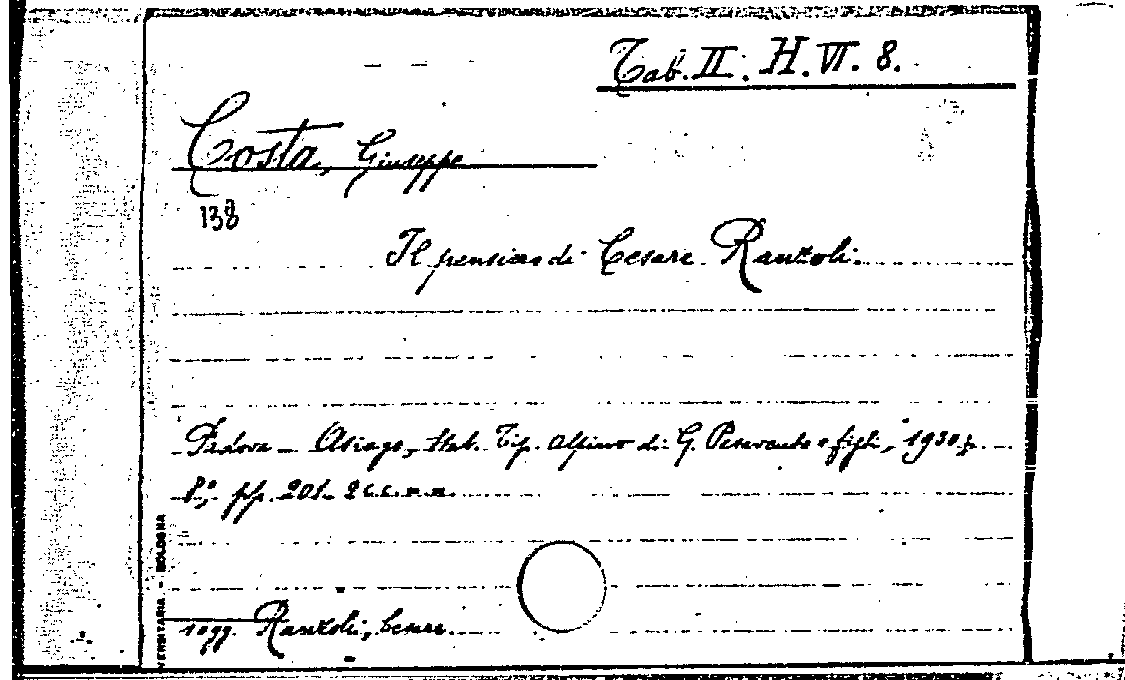 Tab. II. H. VI. 8.
Costa, Giuseppe
138
Il pensiero di Cesare Ranzoli.
Padova - Asiago, Stab. Tip. Alpino di G. Pesavento e figli, 1930,
8°, pp. 201. 2 c.c.n.n.
sogg. Ranzoli, Cesare.
VERSITARIA. - BOLOGNA